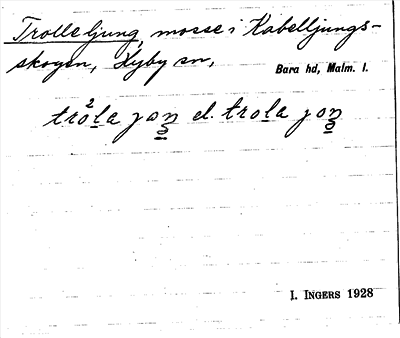 Trolleljung, mosse i Kabelljungs-
skogen, Hyby sn,
Bara hd, Malm. l.
tròla joŋ el. trola joŋ
I. INGERS 1928